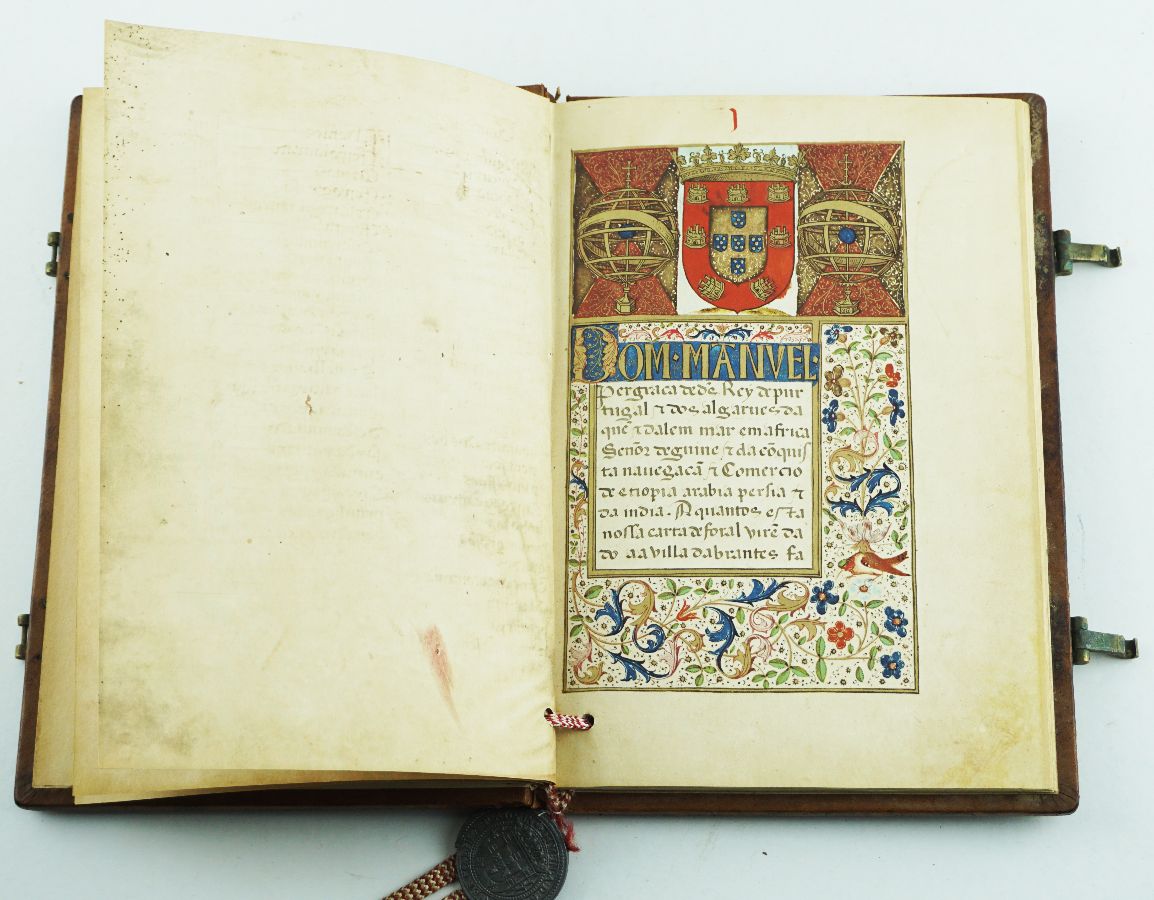 DOM·MANVEL·
Per graca de ds̃ Rey de pur
tugal ⁊ dos algarues da
quẽ ⁊ dalem mar em africa
Señor de guine ⁊ da cõquis
ta navegacã ⁊ Comercio
de etiopia arabia persia ⁊
da india. A quantos esta
nossa carta de foral virẽ da
do aa villa dabrantes fa